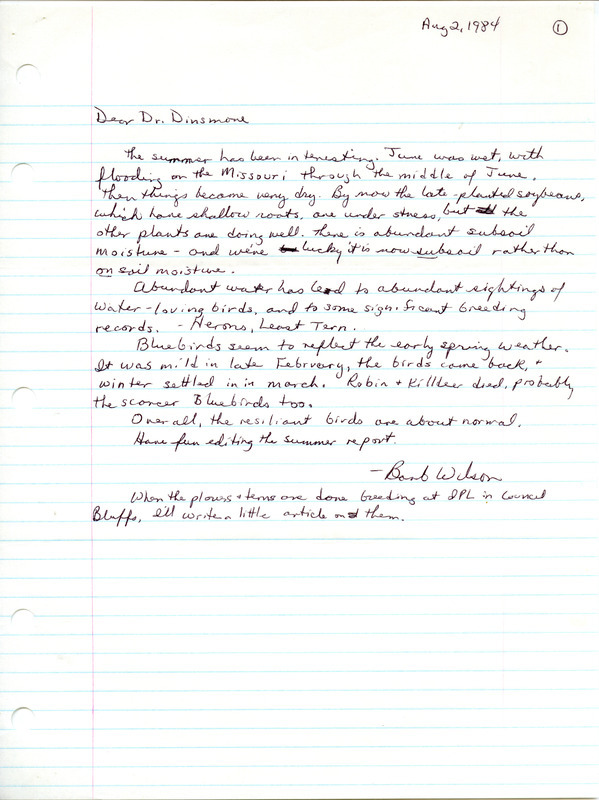 Aug 2, 1984
1
Dear Dr. Dinsmore
The summer has been interesting. June was wet, with
flooding on the Missouri through the middle of June.
Then things became very dry. By now the late-planted soybeans,
which have shallow roots, are under stress, but the
other plants are doing well. There is abundant subsoil
moisture - and we're lucky it is now subsoil rather than
on soil moisture.
Abundant water has lead to abundant sightings of
water-loving birds, and to some significant breeding
records. - Herons, Least Tern.
Bluebirds seem to reflect the early spring weather.
It was mild in late February, the birds came back, +
winter settled in in march. Robin + Killdeer died, probably
the scarcer Bluebirds too.
Over all, the resiliant birds are about normal.
Have fun editing the summer report.
- Barb Wilson
When the plovers + terns are done breeding at IPL in Council
Bluffs, I'll write a little article on them.